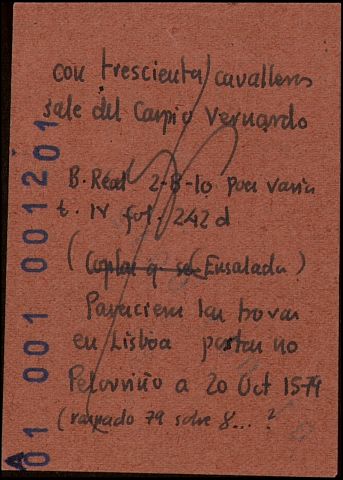 con trescientas cavalleros
sale del Carpio Vernardo
B. Real 2-B-10 poes varias
t. IV fol. 242 d
(Coplas q. se Ensalada)
en Lisboa postas no
Pelouriño a 20 Oct 1579
(raspado 79 sobre 8... ?
01 001 001201